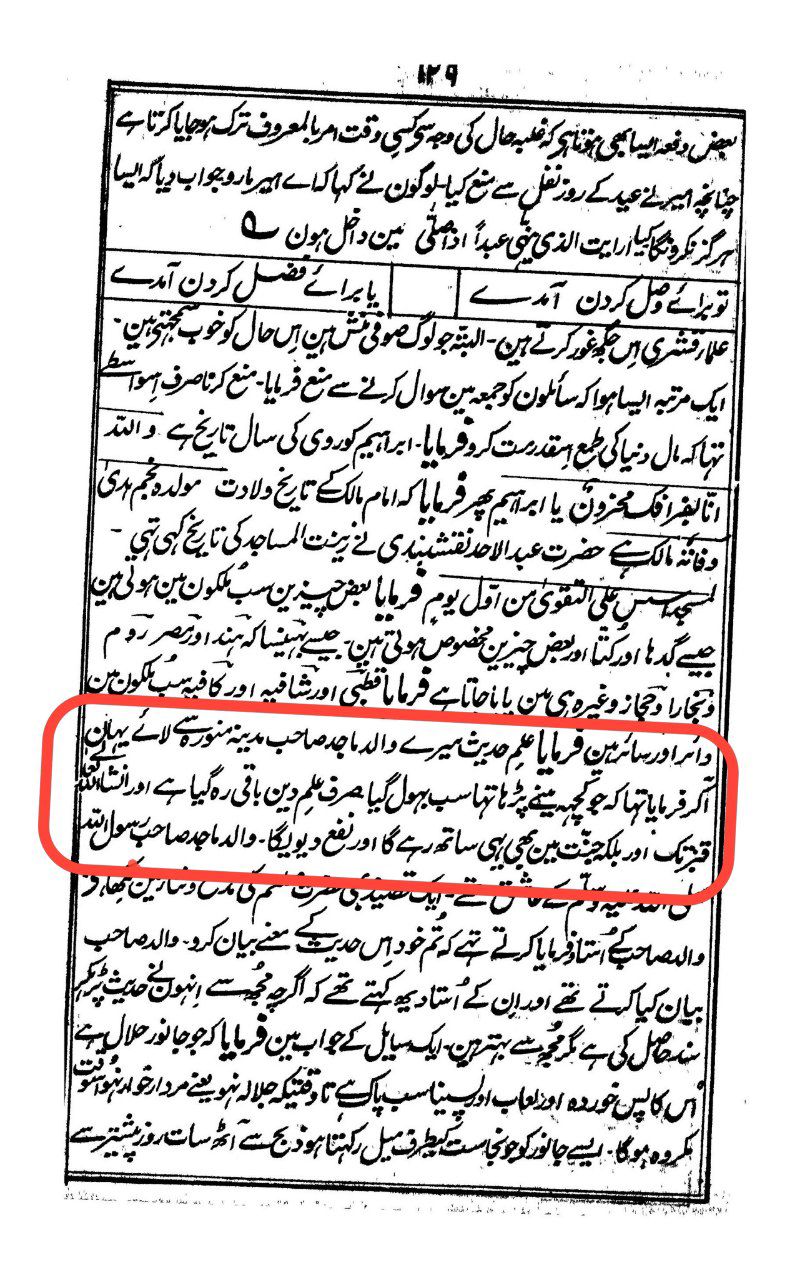 ۱۲۹
بعض دفعہ ایسا بھی ہوتا ہی کہ غلبہ حال کی وجہ سی کسی وقت امر بالمعروف ترک ہوجایا کرتا ہے
چنانچہ امیر نے عید کے روز نفل سے منع کیا۔ لوگون نے کہا کہ اے امیر مارو جواب دیا کہ ایسا
ہرگز نکرونگا کیا ارایت الذی ینہی عبداً اذا صلی مین داخل ہون ؎
تو برائے وصل کردن آمدے یا برائے فصل کردن آمدے
علمار قشری اِس جگہ غور کرتے ہین۔ البتہ جو لوگ صوفی منش ہین اِس حال کو خوب سمجھتی ہین۔
ایک مرتبہ ایسا ہوا کہ سائلون کو جمعہ مین سوال کرنے سے منع فرمایا۔ منع کرنا صرف اِسواسطے
تہا کہ مال دنیا کی طمع اِسقدر مت کرو فرمایا۔ ابراہیم کوردی کی سال تاریخ ہے واللہ
انا بفراقک محزون یا ابراہیم پھر فرمایا کہ امام مالک کے تاریخ ولادت مولدہ نجم ہدیٰ
وفاتہ مالک ہے حضرت عبد الاحد نقشبندی نے زینت المساجد کی تاریخ کہی تہی ۔
لمسجد اسس علی التقویٰ من اوّل یوم فرمایا بعض چیزین سب ملکون مین ہوتی ہین
جیسے گدہا اور کتا اور بعض چیزین مخصوص ہوتی ہین۔ جیسے بھینسا کہ ہند اور مصر روم
وبخارا وحجاز وغیرہ ہی مین پایا جاتا ہے فرمایا قطبی اور شافیہ اور کافیہ سب ملکون مین
دائر اور سائر ہین فرمایا علم حدیث میرے والد ماجد صاحب مدینہ منورہ سے لائے یہان
آکر فرمایا تہا کہ جو کچھہ مینے پڑہا تہا سب بہول گیا صرف علم دین باقی رہ گیا ہے اور انشاء اللہ تعالےٰ
قبر تک اور بلکہ جنّت مین بھی یہی ساتھ رہے گا اور نفع دیویگا۔ والد ماجد صاحب رسول اللہ
صلی اللہ علیہ وسلم کے عاشق تھے۔ ایک قصیدہ بھی حضرت صلعم کی مدح وثنا مین لکھا ہے
والد صاحب کے اُستاد فرمایا کرتے تہے کہ تُم خود اِس حدیث کے معنے بیان کرو۔ والد صاحب
بیان کیا کرتے تھے اور ان کے اُستاد یہ کہتے تھے کہ اگرچہ مجھ سے اِنہون نے حدیث پڑہکر
سند حاصل کی ہے مگر مجھ سے بہتر ہین۔ ایک سایل کے جواب مین فرمایا کہ جو جانور حلال ہے
اُس کا پس خوردہ اور لعاب اور پسینا سب پاک ہے تا وقتیکہ جلالہ نہو یعنے مردار خوار نہو اسوقت
مکروہ ہوگا۔ ایسے جانور کو جو نجاست کیطرف میل رکھتا ہو ذبح سے آٹھ سات روز پیشتر سے